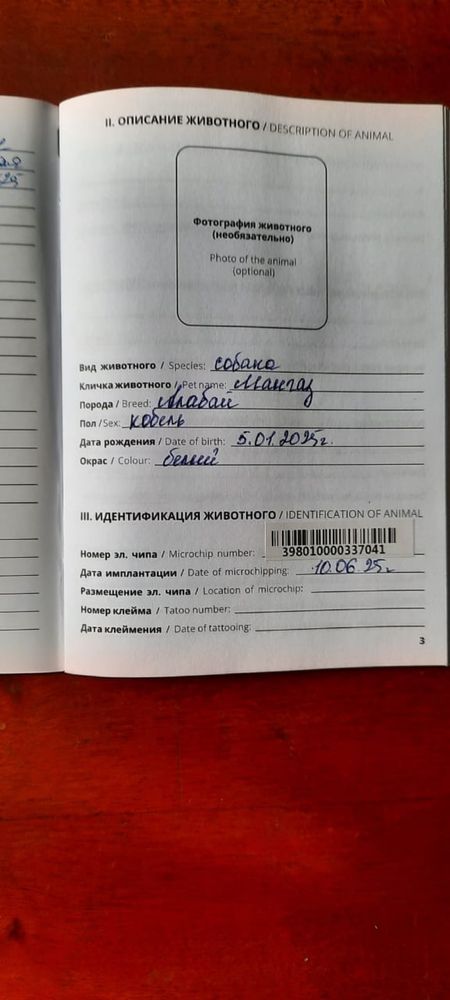 II. ОПИСАНИЕ ЖИВОТНОГО / DESCRIPTION OF ANIMAL
Фотография животного
(необязательно)
Photo of the animal
(optional)
Вид животного / Species: собака
Кличка животного / Pet name: Мангаз
Порода / Breed: Алабай
Пол / Sex: кобель
Дата рождения / Date of birth: 5.01.2025г.
Окрас / Colour: белый
III. ИДЕНТИФИКАЦИЯ ЖИВОТНОГО / IDENTIFICATION OF ANIMAL
Номер эл. чипа / Microchip number: 398010000337041
Дата имплантации / Date of microchipping: 10.06.25г
Размещение эл. чипа / Location of microchip:
Номер клейма / Tatoo number:
Дата клеймения / Date of tattooing:
3